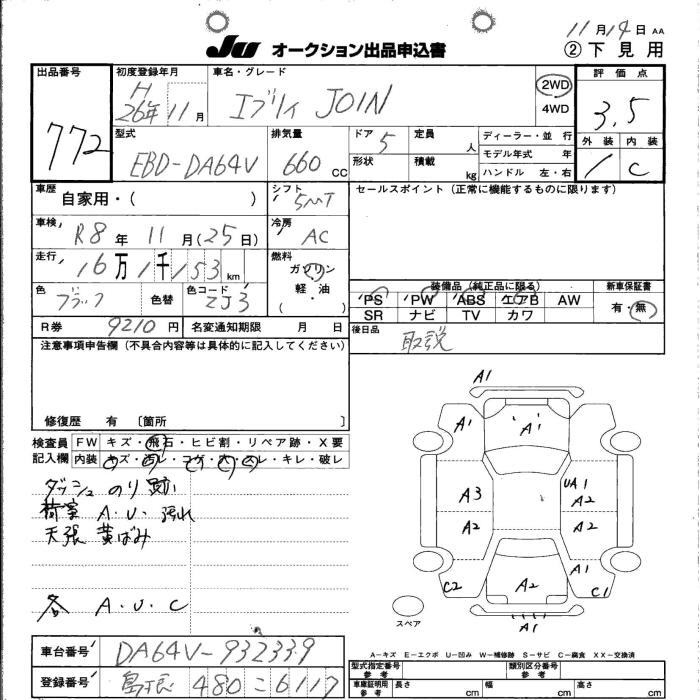 11月14日 AA
JU オークション出品申込書
② 下見用
出品番号 772
初度登録年月 H 26年 11月
車名・グレード エブリィ JOIN
2WD
4WD
評価点 3.5
外装 内装
1 C
型式 EBD-DA64V
排気量 660 CC
ドア 5
形状
定員 人
積載 kg
ディーラー・並 行
モデル年式 年
ハンドル 左・右
車歴 自家用・( )
シフト 5MT
セールスポイント(正常に機能するものに限ります)
車検 R8年 11月(25日)
冷房 AC
走行 16万1千153km
燃料 ガソリン
軽・油
( ・ )
色 ブラック 色替
色コード ZJ3
装備品(純正品に限る)
PS PW ABS エアB AW
SR ナビ TV カワ
新車保証書
有・無
R券 9210円 名変通知期限 月 日
後日品 取説
注意事項申告欄(不具合内容等は具体的に記入してください)
修復歴 有 [箇所 ]
検査員記入欄
FW キズ・飛石・ヒビ割・リペア跡・X要
内装 キズ・汚レ・コゲ・穴・スレ・キレ・破レ
ダッシュ のり跡
荷室 A.U. 汚れ
天張 黄ばみ
各 A.U.C
A1
A1 A1
A3 UA1
A2
A2 A2
A1
C2 A2 C1
A1
スペア
A-キズ E-エクボ U-凹み W-補修跡 S-サビ C-腐食 XX-交換済
車台番号 DA64V-932339
登録番号 島根 480 こ 6117
型式指定番号 参考
類別区分番号 参考
車庫証明用 参考 長さ cm 幅 cm 高さ cm